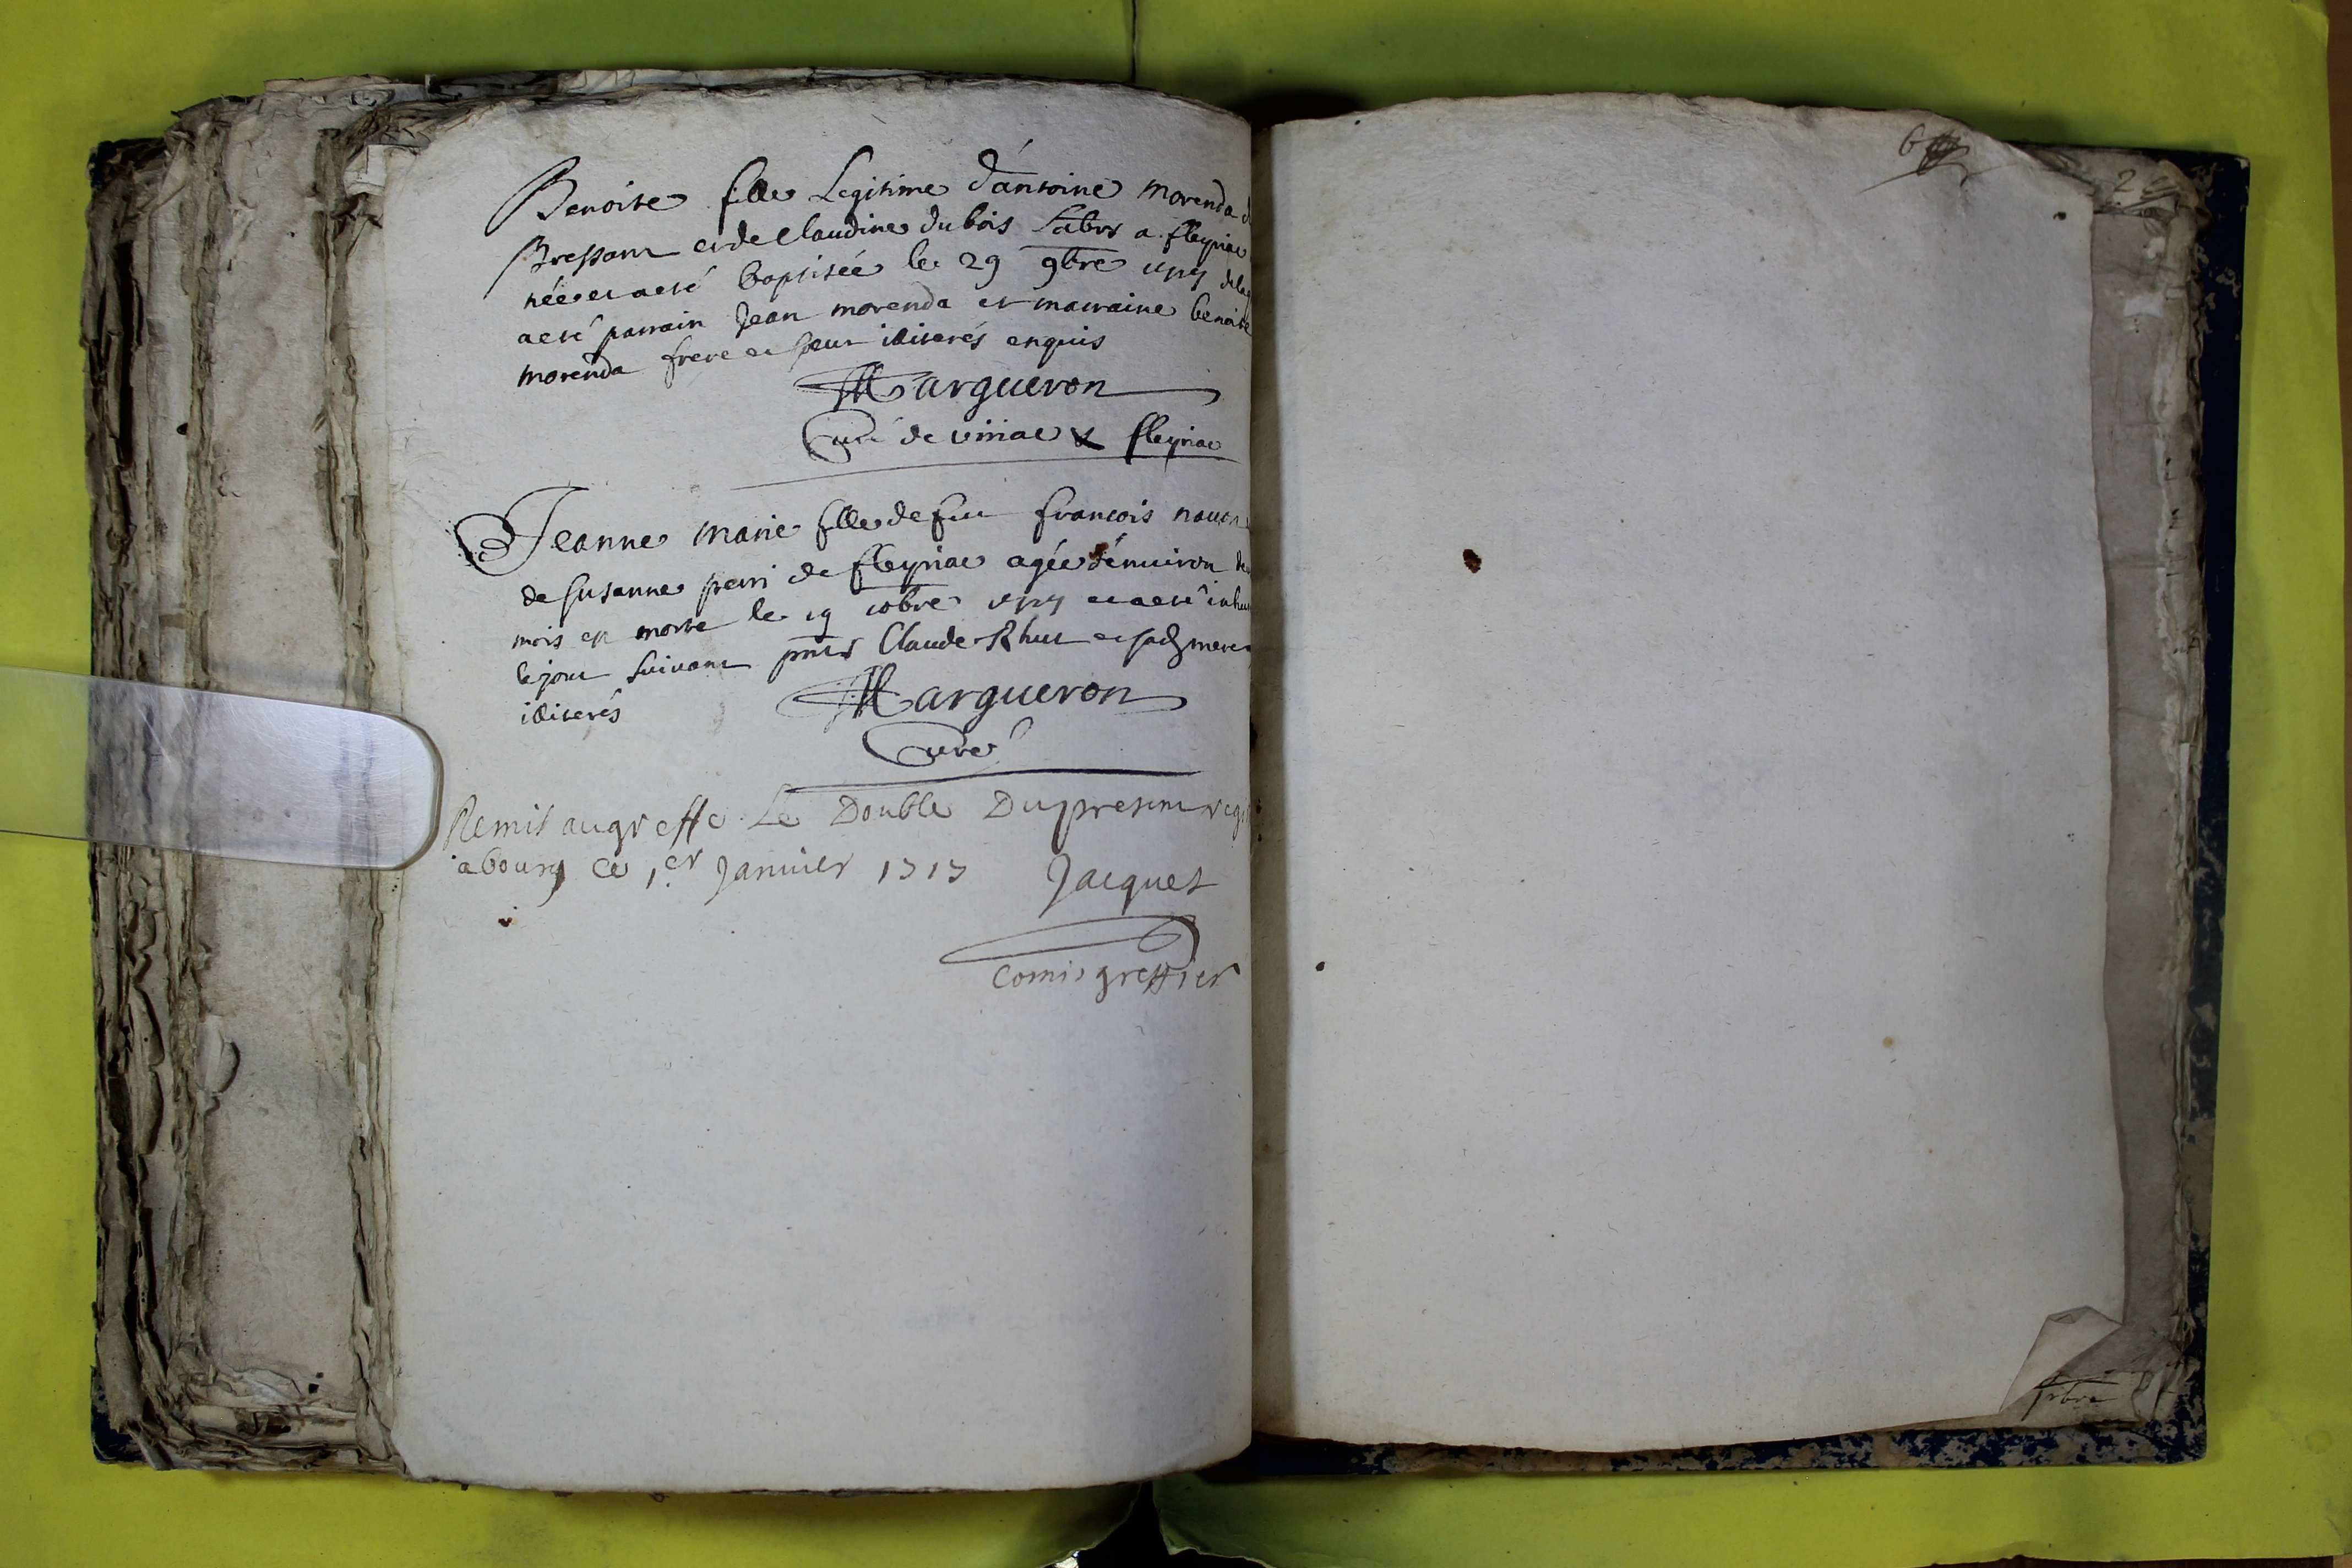 Benoite fille Legitime d'antoine morenda
Bressam et de Claudine du bois Labrs a fleyriac
née et a eté baptisée le 29 9bre
a eté parrain Jean morenda et marraine benoite
morenda frere et soeur illiterés enquis
Margueron
Curé de viriac & fleyriac
Jeanne marie fille de feu francois
de Susanne perri de fleyriac agée d'enuiron
mois est morte le 19 10bre et a eté
le jour suivant pnts Claude Rhut et sad mere
illiterés
Margueron
Curé
Remis au greffe Le Double Du present
a bourg ce 1er Janvier 1717 Jacquet
comis greffier
6
2